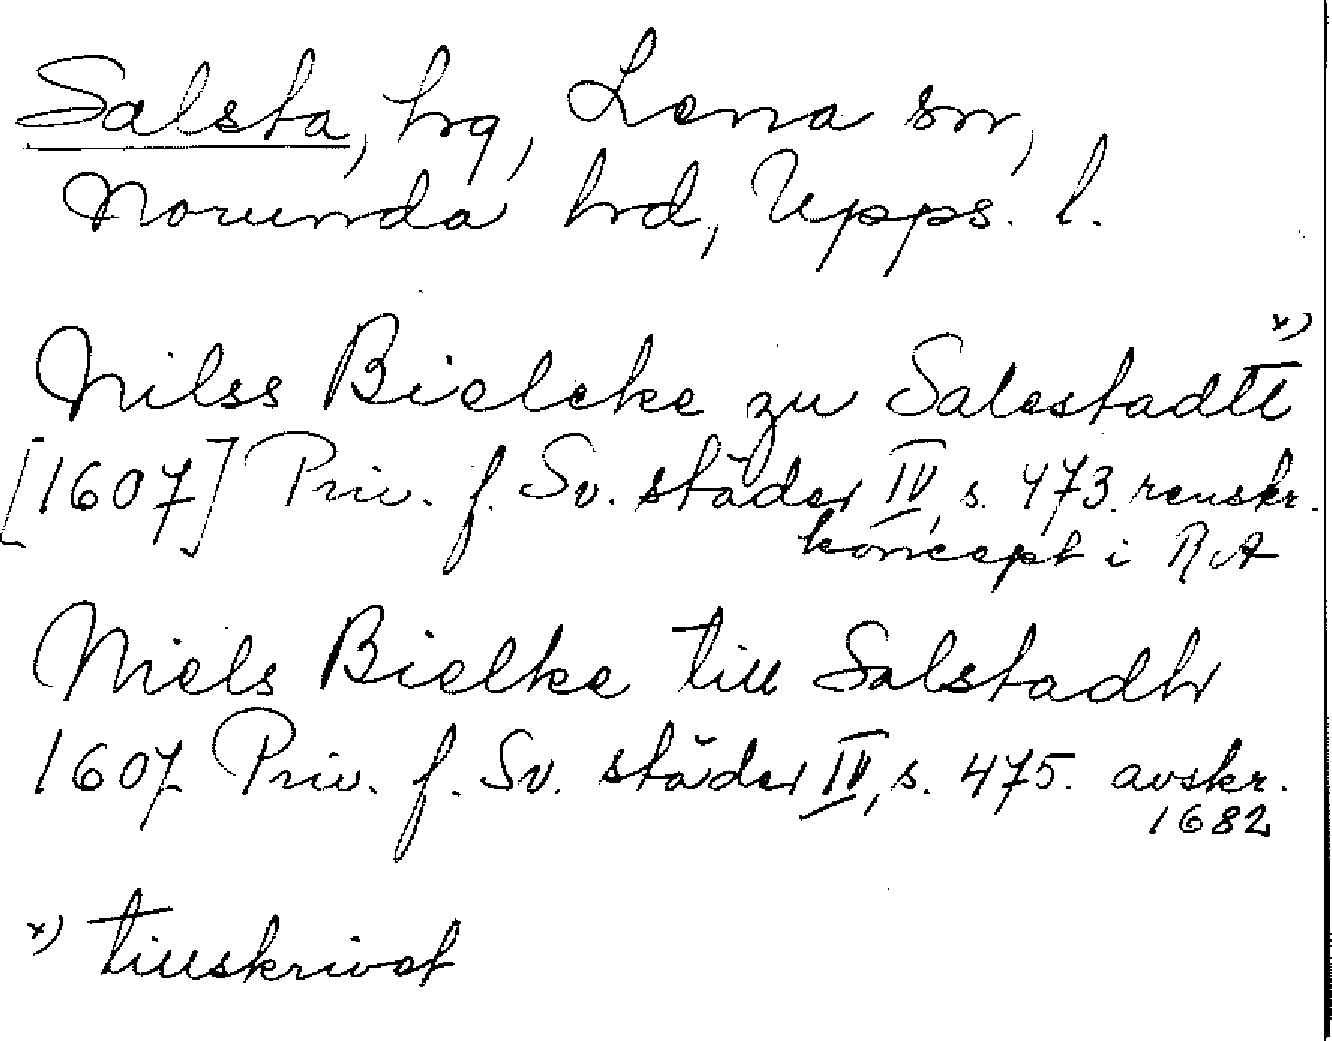 Salsta, hg, Lena sn,
Norunda hd, Upps. l.
Nilss Bielcke zu Salestadtt x)
[1607] Priv. f. Sv. städer IV, s. 473. renskr.
koncept i RA
Niels Bielke till Salstadh
1607 Priv. f. Sv. städer IV, s. 475. avskr.
1682
x) tillskrivet